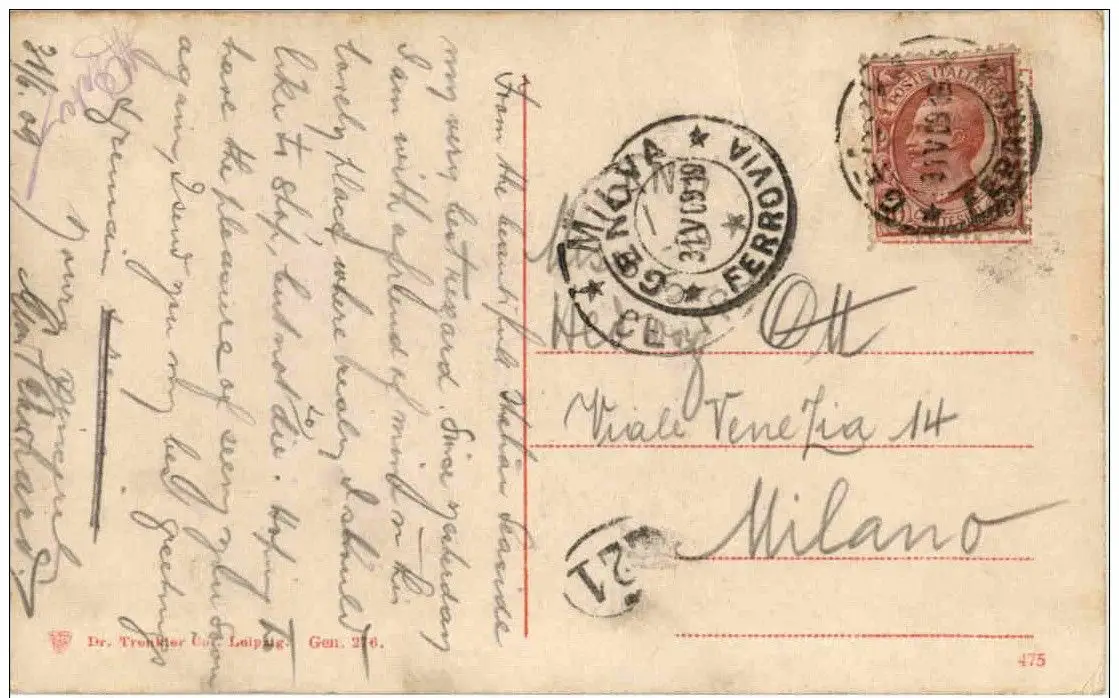 From the beautifull Italian Seaside
my very best regard. Since yesterday
I am with a friend of mind in this
lovely place where really I should
like to stop, but not to die. Hoping to
have the pleasure of seeing you soon
again, I send you my best greetings
Yours sincerely
31/5.09
POSTE ITALIANE
GENOVA
FERROVIA
31 V 09
GENOVA ★ FERROVIA
31 V 09
MILANO
Ott
Viale Venezia 14
Milano
21
Dr. Trenkler Co., Leipzig. Gen. 276.
475